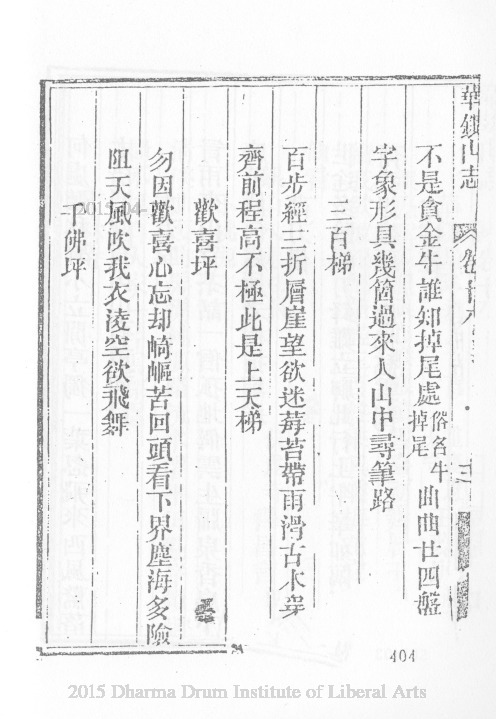 華鎣山志
不是貪金牛誰知掉尾處俗名牛掉尾曲曲廿四盤
字象形具幾箇過來人山中尋筆路
三百梯
百步經三折層崖望欲迷莓苔帶雨滑古木穿
齊前程高不極此是上天梯
歡喜坪
勿因歡喜心忘却崎嶇苦回頭看下界塵海多險
阻天風吹我衣凌空欲飛舞
千佛坪
404
2015 Dharma Drum Institute of Liberal Arts